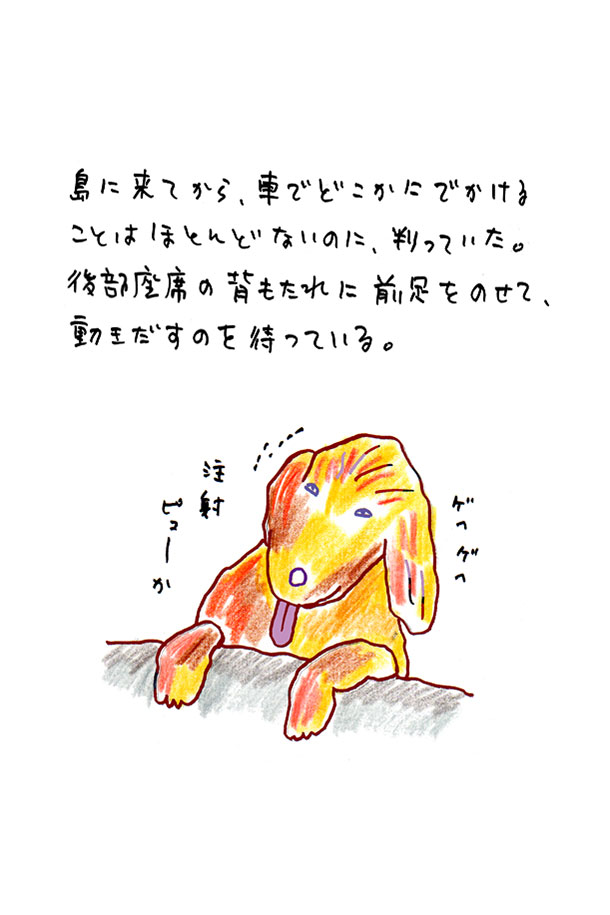 島に来てから、車でどこかにでかける
ことはほとんどないのに、判っていた。
後部座席の背もたれに前足をのせて、
動きだすのを待っている。
注射
ピューか
ゲヘゲヘ